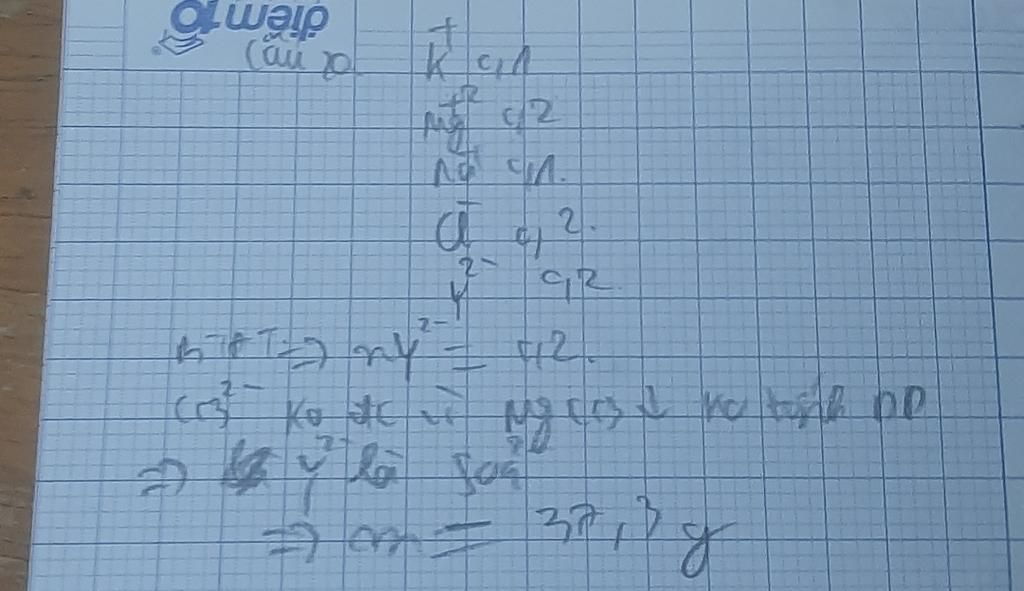 điểm10
Câu 20 K+ 0,1
Mg+2 0,2
Na+ 0,1.
Cl- 0,2.
Y2- 0,2
BTĐT => nY2- = 0,2.
CO32- ko đc vì MgCO3 ↓ ko
=> Y2- là SO42-
=> m = 37,3 g